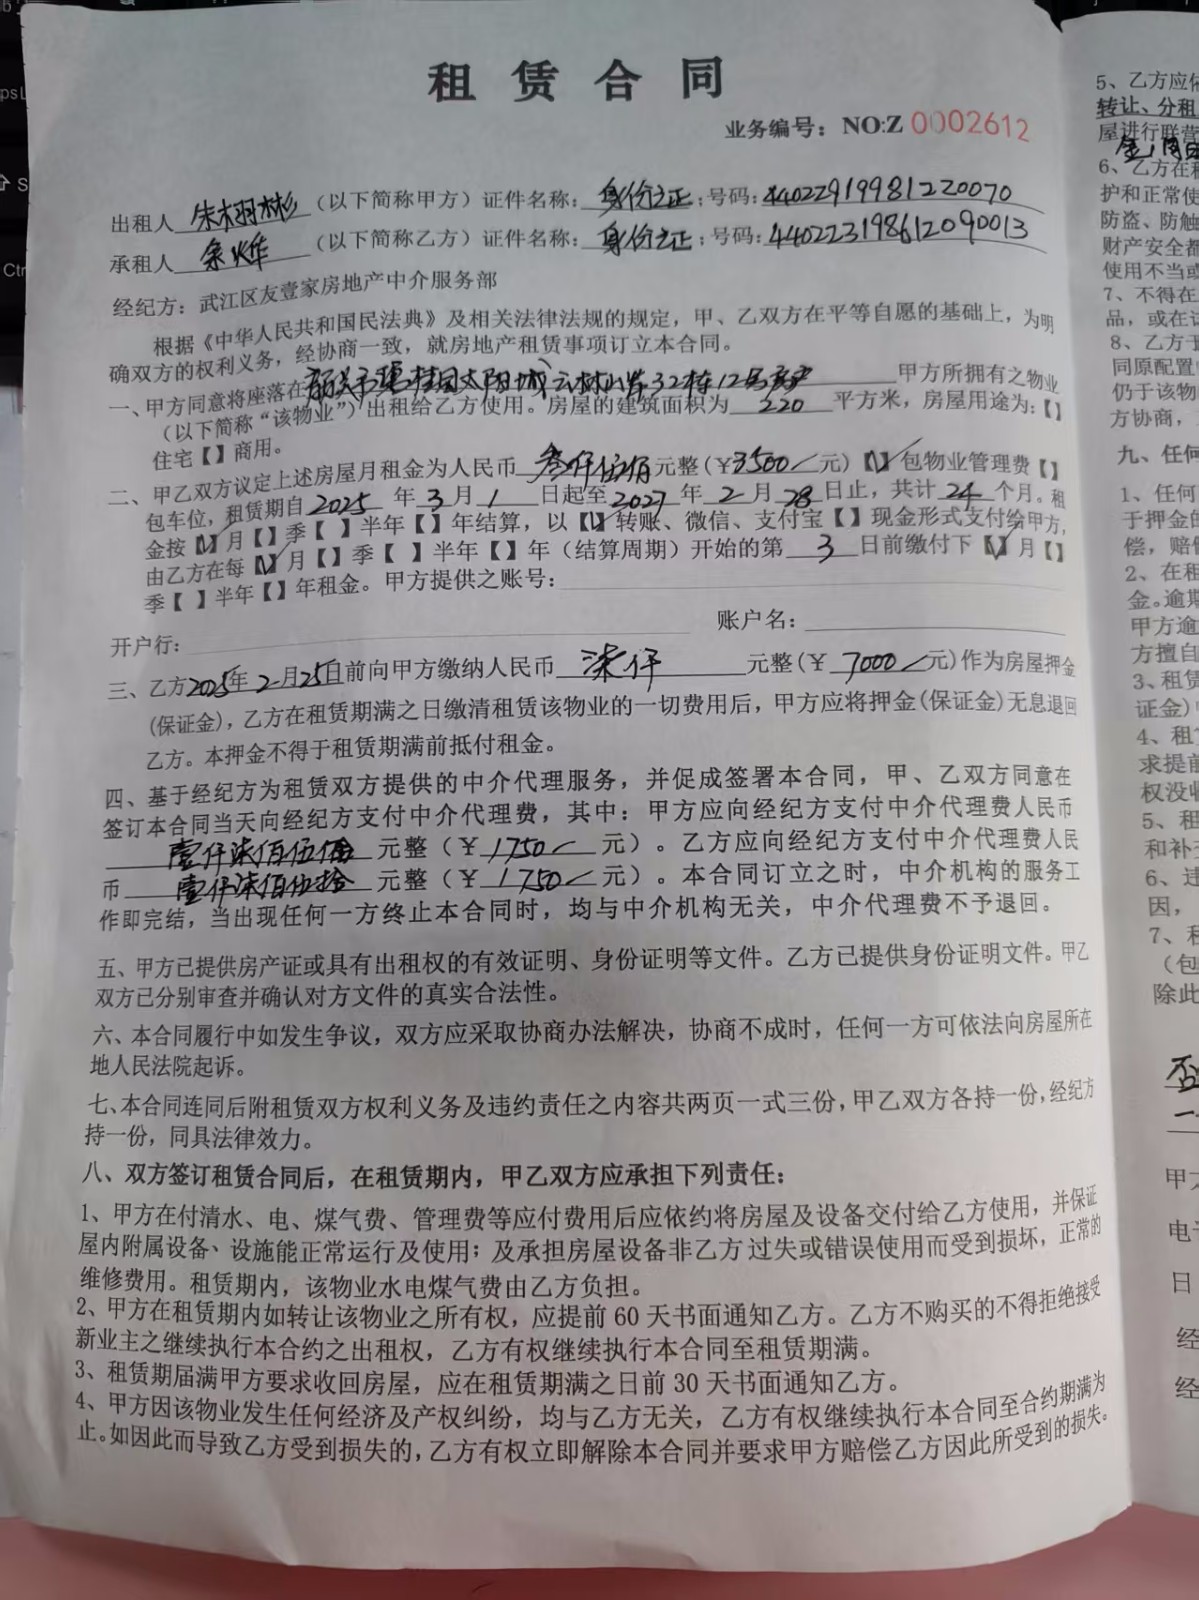 租赁合同
业务编号：NO:Z 0002612
出租人 朱栩彬 （以下简称甲方）证件名称：身份证；号码：44022919981220070
承租人 余烨 （以下简称乙方）证件名称：身份证；号码：440223198612090013
经纪方：武江区友壹家房地产中介服务部
根据《中华人民共和国民法典》及相关法律法规的规定，甲、乙双方在平等自愿的基础上，为明
确双方的权利义务，经协商一致，就房地产租赁事项订立本合同。
一、甲方同意将座落在韶关市碧桂园太阳城云林八街32栋12号房产 甲方所拥有之物业
（以下简称“该物业”）出租给乙方使用。房屋的建筑面积为 220 平方米，房屋用途为：【】
住宅【】商用。
二、甲乙双方议定上述房屋月租金为人民币 叁仟伍佰 元整(￥3500 元)【√】包物业管理费【】
包车位，租赁期自 2025 年 3 月 1 日起至 2027 年 2 月 28 日止，共计 24 个月。租
金按【√】月【】季【】半年【】年结算，以【√】转账、微信、支付宝【】现金形式支付给甲方，
由乙方在每【√】月【】季【】半年【】年（结算周期）开始的第 3 日前缴付下【√】月【】
季【】半年【】年租金。甲方提供之账号：
开户行： 账户名：
三、乙方2025年2月25日前向甲方缴纳人民币 柒仟 元整(￥ 7000 元)作为房屋押金
(保证金)，乙方在租赁期满之日缴清租赁该物业的一切费用后，甲方应将押金(保证金)无息退回
乙方。本押金不得于租赁期满前抵付租金。
四、基于经纪方为租赁双方提供的中介代理服务，并促成签署本合同，甲、乙双方同意在
签订本合同当天向经纪方支付中介代理费，其中：甲方应向经纪方支付中介代理费人民币
壹仟柒佰伍 元整（￥ 1750 元）。乙方应向经纪方支付中介代理费人民
币 壹仟柒佰伍拾 元整（￥ 1750 元）。本合同订立之时，中介机构的服务工
作即完结，当出现任何一方终止本合同时，均与中介机构无关，中介代理费不予退回。
五、甲方已提供房产证或具有出租权的有效证明、身份证明等文件。乙方已提供身份证明文件。甲乙
双方已分别审查并确认对方文件的真实合法性。
六、本合同履行中如发生争议，双方应采取协商办法解决，协商不成时，任何一方可依法向房屋所在
地人民法院起诉。
七、本合同连同后附租赁双方权利义务及违约责任之内容共两页一式三份，甲乙双方各持一份，经纪方
持一份，同具法律效力。
八、双方签订租赁合同后，在租赁期内，甲乙双方应承担下列责任：
1、甲方在付清水、电、煤气费、管理费等应付费用后应依约将房屋及设备交付给乙方使用，并保证
屋内附属设备、设施能正常运行及使用；及承担房屋设备非乙方过失或错误使用而受到损坏，正常的
维修费用。租赁期内，该物业水电煤气费由乙方负担。
2、甲方在租赁期内如转让该物业之所有权，应提前 60 天书面通知乙方。乙方不购买的不得拒绝接受
新业主之继续执行本合约之出租权，乙方有权继续执行本合同至租赁期满。
3、租赁期届满甲方要求收回房屋，应在租赁期满之日前 30 天书面通知乙方。
4、甲方因该物业发生任何经济及产权纠纷，均与乙方无关，乙方有权继续执行本合同至合约期满为
止。如因此而导致乙方受到损失的，乙方有权立即解除本合同并要求甲方赔偿乙方因此所受到的损失。
5、乙方应
转让、分租
屋进行联营
6、乙方在
护和正常使
防盗、防触
财产安全都
使用不当或
7、不得在
品，或在
8、乙方于
同原配置
仍于该物
方协商，
九、任何
1、任何
于押金的
偿，赔偿
2、在租
金。逾期
甲方逾
方擅自
3、租赁
证金)
4、租
求提前
权没收
5、租
和补
6、违
因，
7、
（包
除此
甲方
电
日
经
经